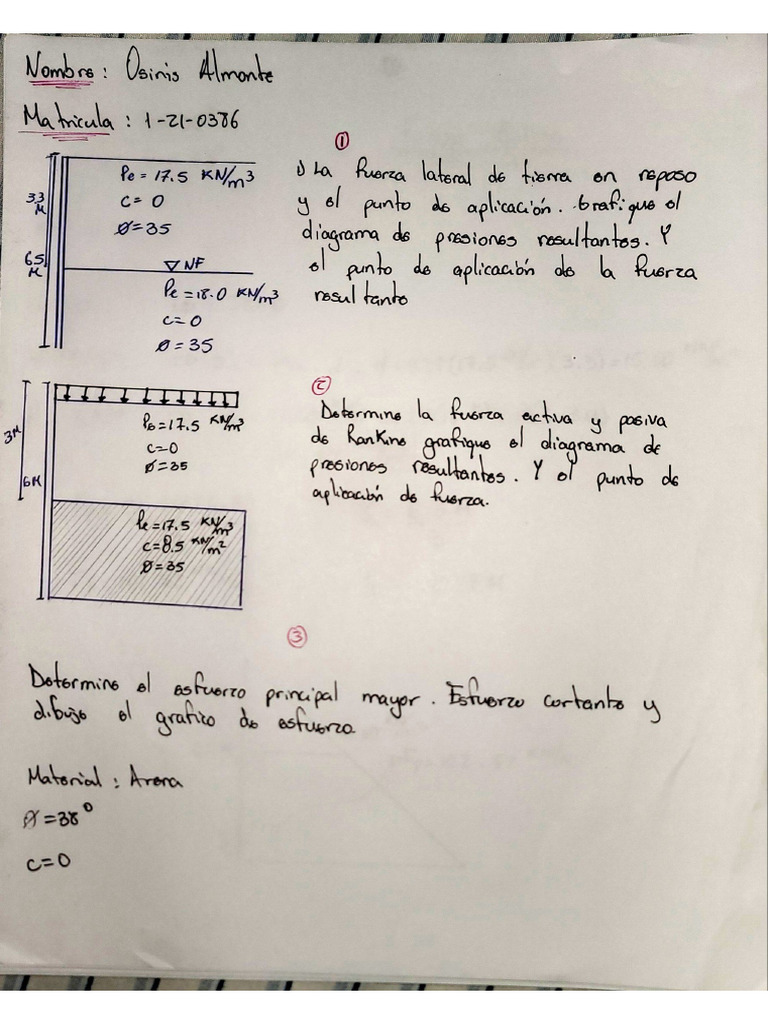 Nombre: Osiris Almonte
Matricula: 1-21-0386
①
3.3 M
6.5 M
Pe = 17.5 KN/m³
C = 0
Ø = 35
▽ NF
Pe = 18.0 KN/m³
C = 0
Ø = 35
1) La fuerza lateral de tierra en reposo
y el punto de aplicación. Grafique el
diagrama de presiones resultantes. Y
el punto de aplicación de la fuerza
resultante
②
3M
6M
Pe = 17.5 KN/m³
C = 0
Ø = 35
Pe = 17.5 KN/m³
C = 8.5 KN/m²
Ø = 35
Determine la fuerza activa y pasiva
de Rankine grafique el diagrama de
presiones resultantes. Y el punto de
aplicación de fuerza.
③
Determine el esfuerzo principal mayor. Esfuerzo cortante y
dibuje el grafico de esfuerzo.
Material: Arena
Ø = 38°
C = 0